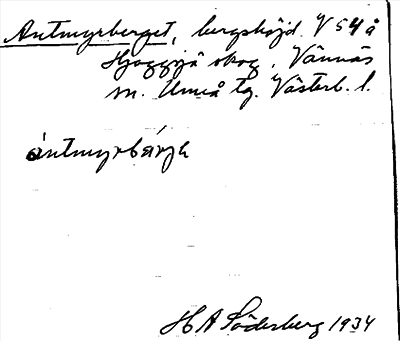 Antmyrberget, bergshöjd. V 54 å
Hjoggsjö skog, Vännäs
sn. Umeå tg. Västerb. l.
ántmyrbärje
H A Söderberg 1934